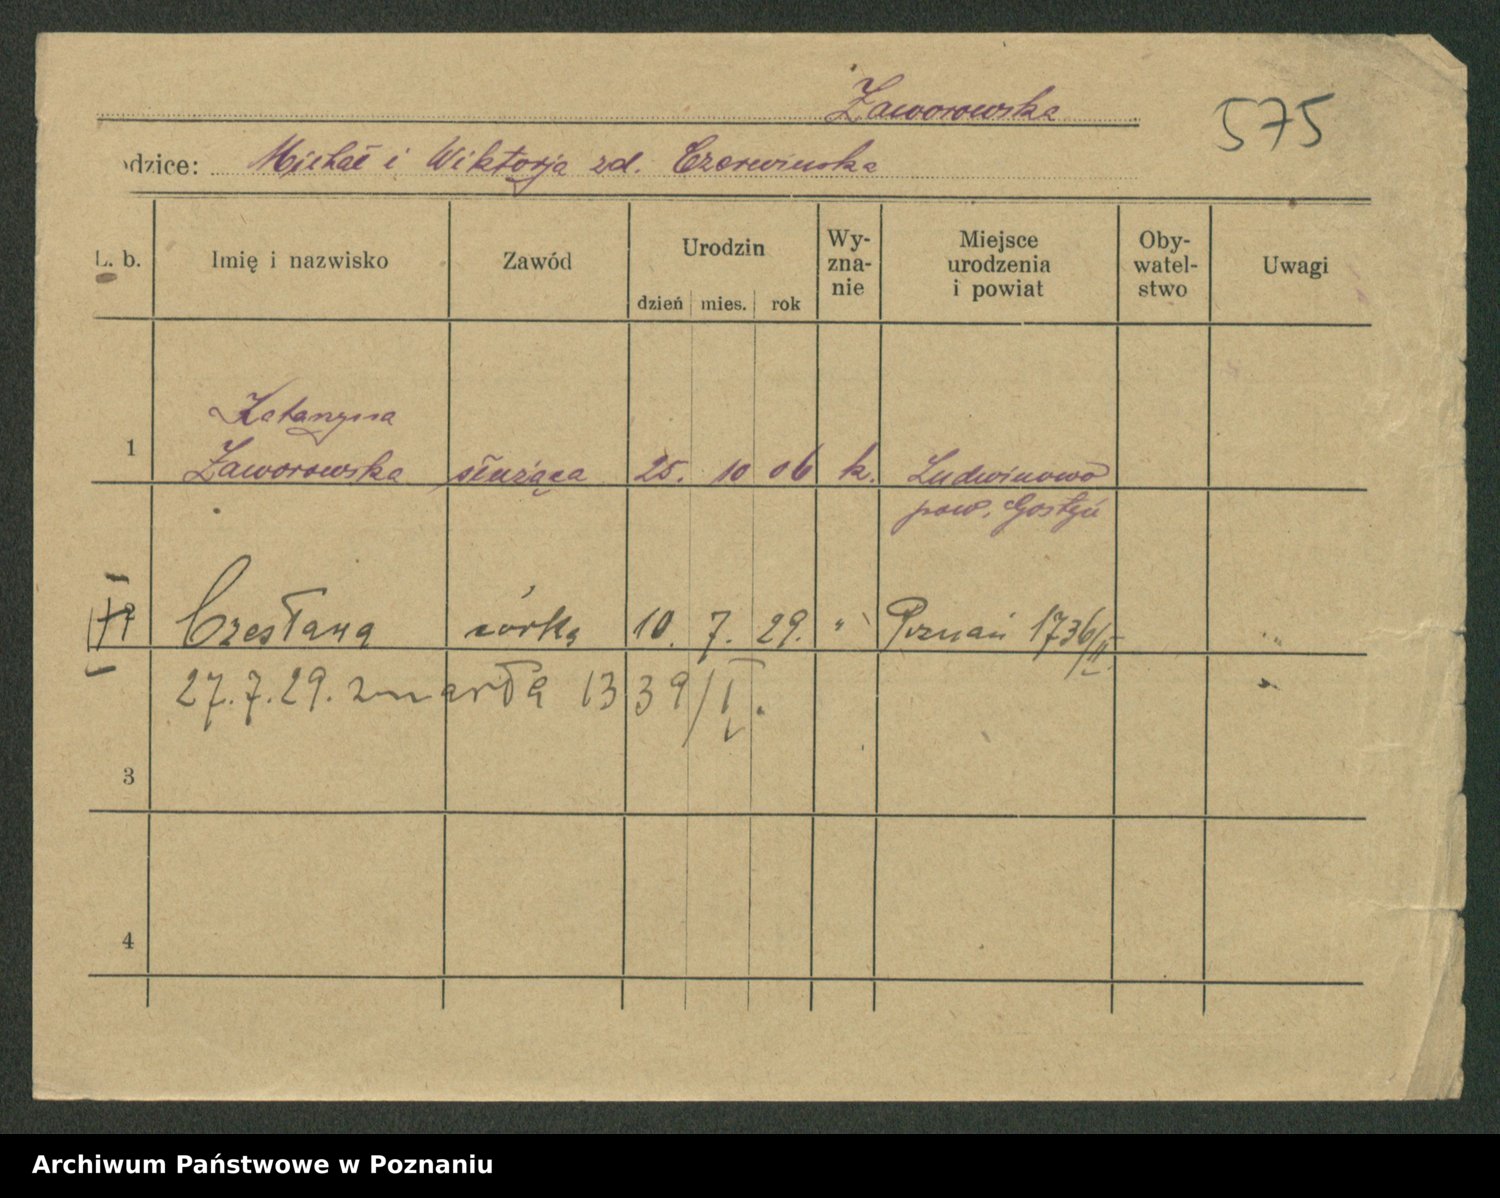 Zaworowska
575
odzice: Michał i Wiktorja zd. Czerwinska
L. b. Imię i nazwisko Zawód Urodzin Wy- Miejsce Oby- Uwagi
zna- urodzenia watel-
nie i powiat stwo
dzień mies. rok
Katarzyna
1 Zaworowska służąca 25. 10 06 k. Ludwinowo
pow. Gostyń
Czesława córka 10. 7. 29. " Poznań 1736/II.
27.7.29. zmarła 1339/I.
3
4
Archiwum Państwowe w Poznaniu